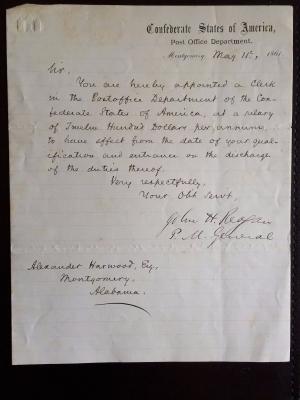 Confederate States of America,
Post Office Department.
Montgomery May 11th, 1861
Sir.
You are hereby appointed a Clerk
in the Postoffice Department of the Con-
federate States of America, at a salary
of Twelve Hundred Dollars per annum,
to have effect from the date of your qual-
ification and entrance on the discharge
of the duties thereof.
Very respectfully.
Your Obt Servt,
John H. Reagan
P. M. General
Alexander Harwood, Esq.
Montgomery.
Alabama.